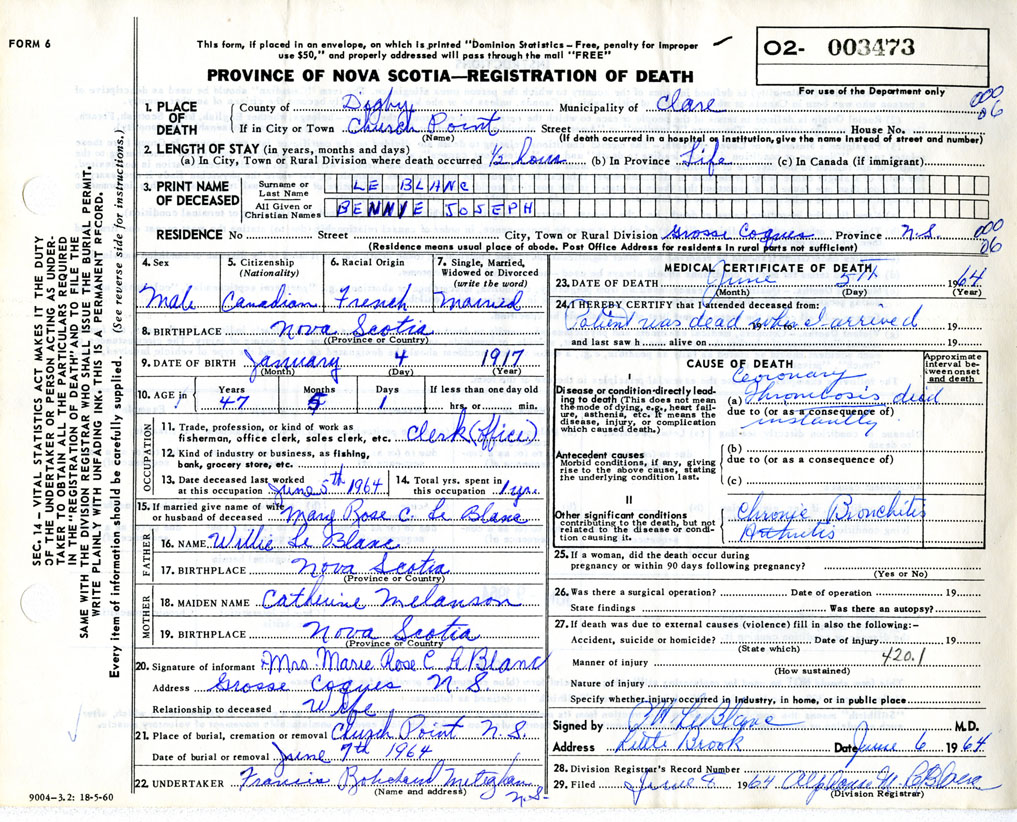 FORM 6
This form, if placed in an envelope, on which is printed "Dominion Statistics – Free, penalty for improper
use $50," and properly addressed will pass through the mail "FREE"
O2- 003473
For use of the Department only
PROVINCE OF NOVA SCOTIA—REGISTRATION OF DEATH
000
06
1. PLACE OF DEATH
County of Digby Municipality of Clare
If in City or Town Church Point Street House No.
(Name) (If death occurred in a hospital or institution, give the name instead of street and number)
2. LENGTH OF STAY (in years, months and days)
(a) In City, Town or Rural Division where death occurred 1/2 hour (b) In Province Life (c) In Canada (if immigrant)
3. PRINT NAME OF DECEASED
Surname or Last Name LE BLANC
All Given or Christian Names BENNIE JOSEPH
RESIDENCE No Street City, Town or Rural Division Grosse Coques Province N.S.
000
06
(Residence means usual place of abode. Post Office Address for residents in rural parts not sufficient)
4. Sex Male
5. Citizenship (Nationality) Canadian
6. Racial Origin French
7. Single, Married, Widowed or Divorced (write the word) Married
8. BIRTHPLACE Nova Scotia
(Province or Country)
9. DATE OF BIRTH January 4 1917
(Month) (Day) (Year)
10. AGE in Years 47 Months 5 Days 1 If less than one day old hrs. or min.
OCCUPATION
11. Trade, profession, or kind of work as
fisherman, office clerk, sales clerk, etc. Clerk (office)
12. Kind of industry or business, as fishing,
bank, grocery store, etc.
13. Date deceased last worked at this occupation June 5th 1964
14. Total yrs. spent in this occupation 1 yr.
15. If married give name of wife
or husband of deceased Mary Rose C. Le Blanc
FATHER
16. NAME Willie Le Blanc
17. BIRTHPLACE Nova Scotia
(Province or Country)
MOTHER
18. MAIDEN NAME Catherine Melanson
19. BIRTHPLACE Nova Scotia
(Province or Country)
20. Signature of informant Mrs. Marie Rose C Le Blanc
Address Grosse Coques N.S.
Relationship to deceased Wife
21. Place of burial, cremation or removal Church Point N.S.
Date of burial or removal June 7th 1964
22. UNDERTAKER Francis Meteghan
N.S.
(Name and address)
MEDICAL CERTIFICATE OF DEATH
23. DATE OF DEATH June 5th 1964
(Month) (Day) (Year)
24. I HEREBY CERTIFY that I attended deceased from:
Patient was dead when I arrived 19 19
and last saw h alive on 19
CAUSE OF DEATH
Approximate interval between onset and death
I
Disease or condition directly leading to death (This does not mean the mode of dying, e.g., heart failure, asthenia, etc. It means the disease, injury, or complication which caused death.)
(a) Coronary
Thrombosis died
due to (or as a consequence of)
instantly
Antecedent causes
Morbid conditions, if any, giving rise to the above cause, stating the underlying condition last.
(b)
due to (or as a consequence of)
(c)
II
Other significant conditions
contributing to the death, but not related to the disease or condition causing it.
Chronic Bronchitis
Arthritis
25. If a woman, did the death occur during
pregnancy or within 90 days following pregnancy?
(Yes or No)
26. Was there a surgical operation? Date of operation 19
State findings Was there an autopsy?
27. If death was due to external causes (violence) fill in also the following:–
Accident, suicide or homicide? Date of injury 19
(State which)
420.1
Manner of injury
(How sustained)
Nature of injury
Specify whether injury occurred in industry, in home, or in public place
Signed by LeBlanc M.D.
Address Little Brook Date June 6 1964
28. Division Registrar's Record Number
29. Filed June 1964 Alphonse M. LeBlanc
(Division Registrar)
9004-3.2: 18-5-60
SEC. 14 – VITAL STATISTICS ACT MAKES IT THE DUTY
OF THE UNDERTAKER OR PERSON ACTING AS UNDER-
TAKER TO OBTAIN ALL THE PARTICULARS REQUIRED
IN THE "REGISTRATION OF DEATH" AND TO FILE THE
SAME WITH THE DIVISION REGISTRAR WHO SHALL ISSUE THE BURIAL PERMIT.
WRITE PLAINLY WITH UNFADING INK. THIS IS A PERMANENT RECORD.
Every item of information should be carefully supplied. (See reverse side for instructions.)